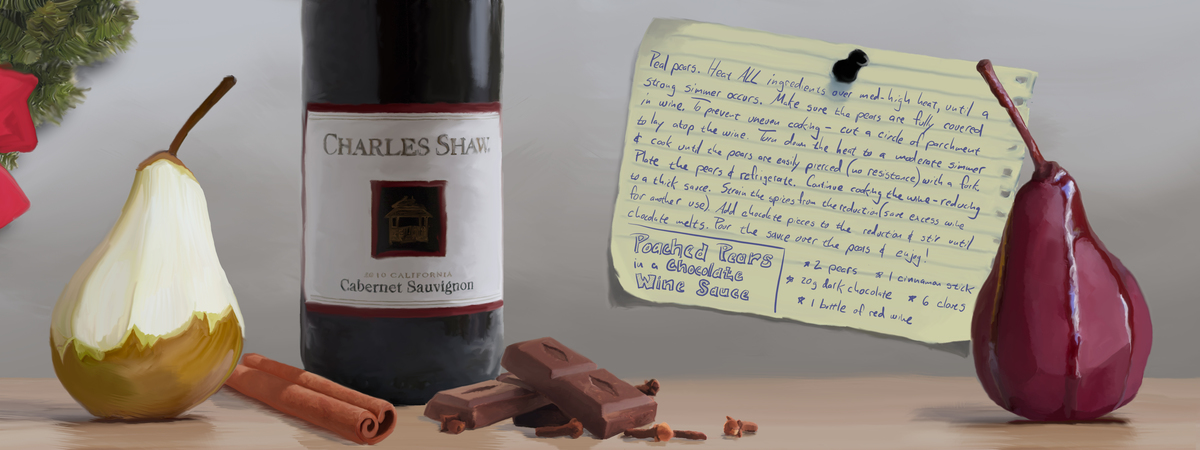 CHARLES SHAW.
2010 CALIFORNIA
Cabernet Sauvignon
Peal pears. Heat ALL ingredients over med-high heat, until a
strong simmer occurs. Make sure the pears are fully covered
in wine. To prevent uneven cooking - cut a circle of parchment
to lay atop the wine. Turn down the heat to a moderate simmer
& cook until the pears are easily pierced (no resistance) with a fork.
Plate the pears & refrigerate. Continue cooking the wine-reducing
to a thick sauce. Strain the spices from the reduction (save excess wine
for another use) Add chocolate pieces to the reduction & stir until
chocolate melts. Pour the sauce over the pears & enjoy!
Poached Pears
in a Chocolate
Wine Sauce
* 2 pears * 1 cinnamon stick
* 20g dark chocolate * 6 cloves
* 1 bottle of red wine